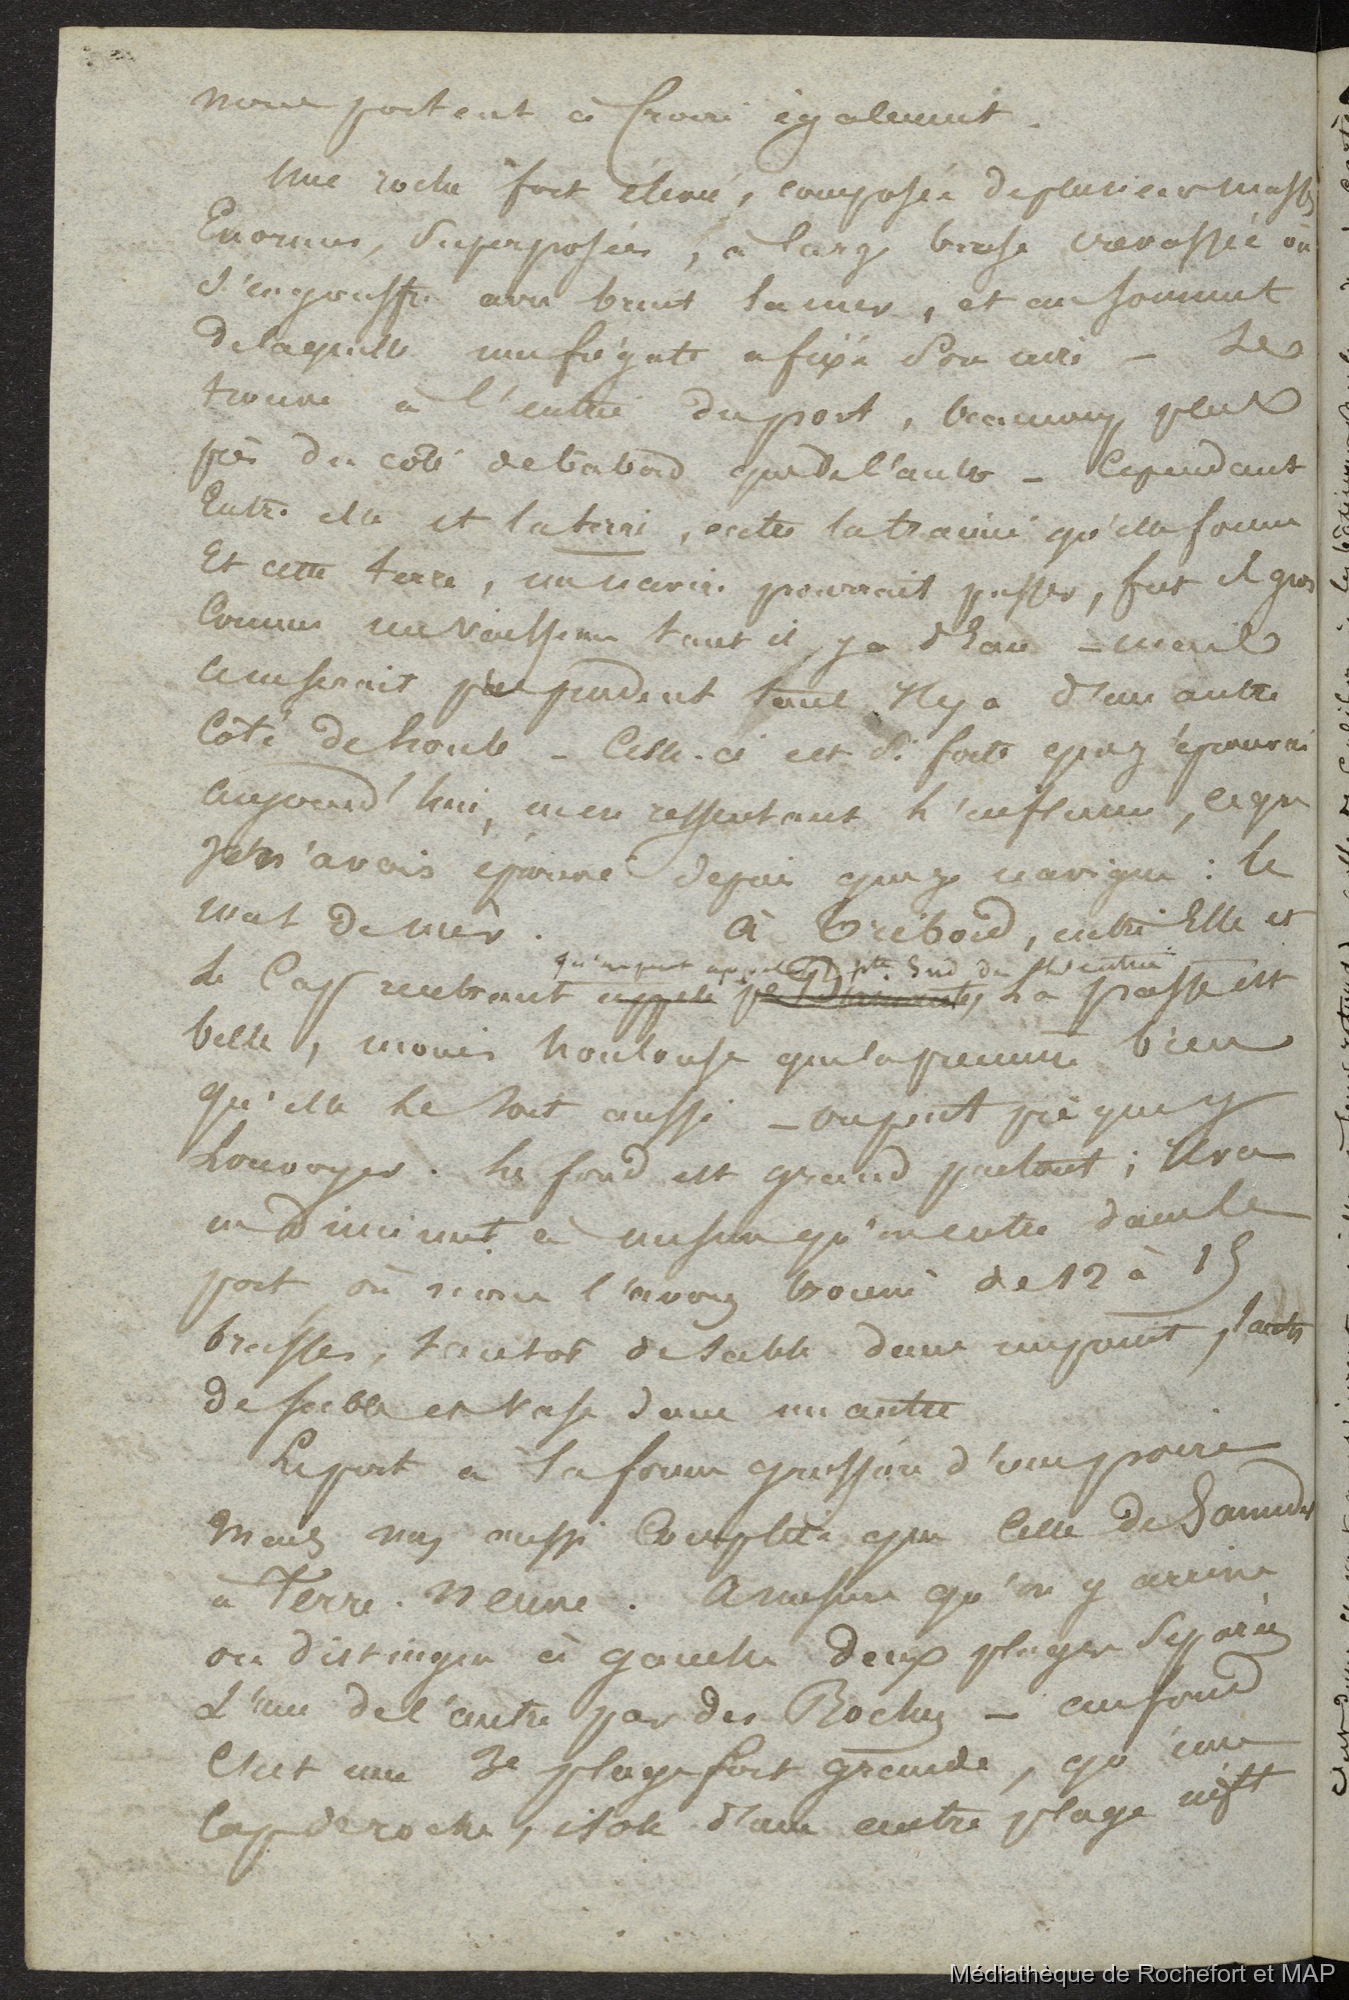 nous portent à Croire également.
Une roche fort élevée, composée de plusieurs masses
Enormes, Superposées, à large base crevassée où
s'engouffre avec bruit la mer, et au sommet
de laquelle une frégate a fixé Son aire – Se
trouve à l'entrée du port, beaucoup plus
près du côté de babord que de l'autre – Cependant
Entre elle et la terre, entre la trainée qu'elle forme
Et cette terre, un navire pourrait passer, fut il gros
Comme un vaisseau tant il y a d'Eau – mais
ce ne serait pas prudent tant Il y a d'un autre
Côté de houle – Celle-ci est Si forte que j'éprouvai
aujourd'hui, en en ressentant l'influence, ce que
je n'avais éprouvé depuis que je navigue : le
mal de mer. À tribord, entre Elle et
qu'on peut appeler pte Sud de l'entrée
le Cap rentrant appelé La passe est
belle, moins houleuse que la première bien
qu'elle le soit aussi – on peut presque y
Louvoyer. Le fond est grand partout ; il va
en diminuant à mesure qu'on entre dans le
port où nous l'avons trouvé de 12 à 15
brasses, tantôt de sable dans un point, tantôt
de sable et vase dans un autre
Le port a la forme grossière d'une poire
Mais non aussi Complète que Celle de
à Terre-Neuve. A mesure qu'on y arrive
on distingue à gauche deux plages Séparées
L'une de l'autre par des Roches – au fond
C'est une 3e plage fort grande, qu'un
Cap de roche, isole d'une autre plage
Médiathèque de Rochefort et MAP